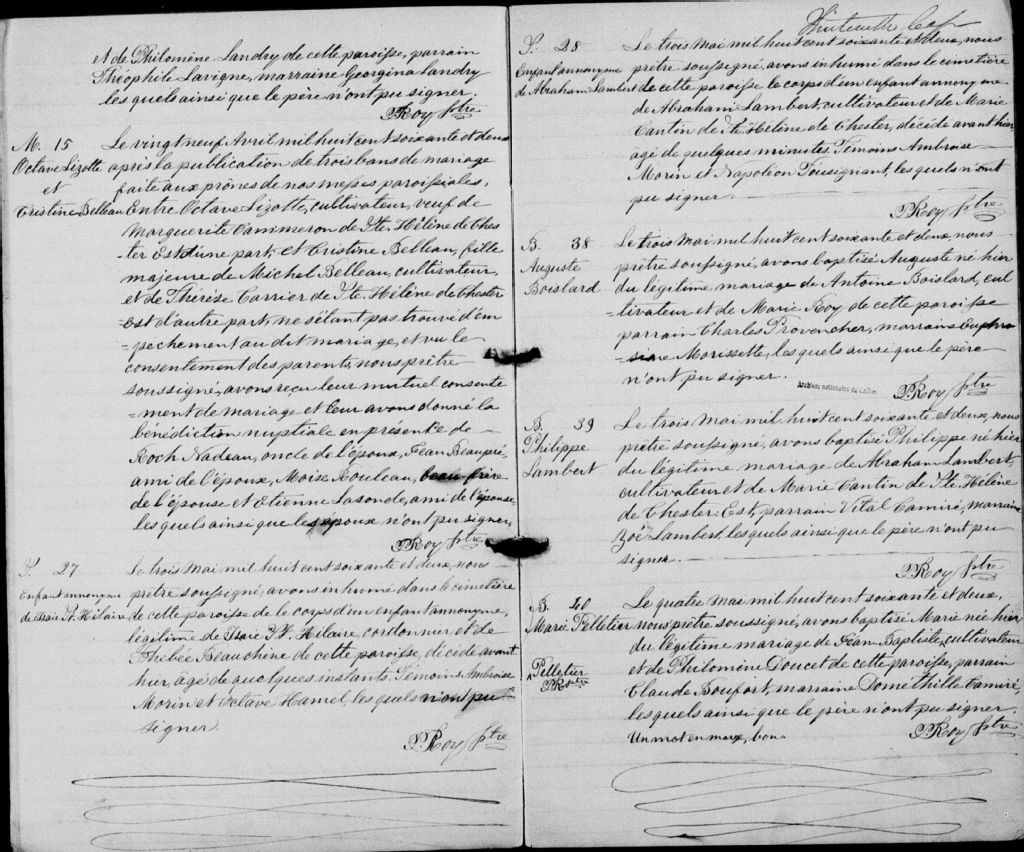 et de Philomène Landry de cette paroisse, parrain
Théophile Lavigne, marraine Georgina Landry
les quels ainsi que le père n'ont pu signer.
P Roy ptre
M. 15
Octave Lizotte
et
Cristine Belleau
Le vingt neuf Avril mil huit cent soixante et deux
après la publication de trois bans de mariage
faite aux prônes de nos messes paroissiales,
Entre Octave Lizotte, cultivateur, veuf de
Marguerite Cammeron de Ste. Hélène de Ches
ter Est d'une part, et Cristine Belleau, fille
majeure de Michel Belleau, cultivateur
et de Thérèse Carrier de Ste. Hélène de Chester
Est d'autre part, ne s'étant pas trouvé d'em
=pechement au dit mariage, et vu le
consentement des parents, nous prêtre
soussigné, avons reçu leur mutuel consente
=ment de mariage et leur avons donné la
bénédiction nuptiale en présence de
Roch Nadeau, oncle de l'époux, Jean Beaupré,
ami de l'époux, Moise Rouleau, beau-frère
de l'épouse et Etienne Lasonde, ami de l'épouse,
les quels ainsi que les époux n'ont pu signer,
P Roy ptre
S. 27
Enfant annonyme
de Isaie St. Hilaire
Le trois Mai mil huit cent soixante et deux, nous
prêtre soussigné, avons inhumé dans le cimetière
de cette paroisse de le corps d'un enfant annonyme,
légitime de Isaie St. Hilaire, cordonnier et de
Phebée Beauchêne de cette paroisse, décédé avant
hier, âgé de quelques instants. Témoins Ambroise
Morin et Octave Hamel, les quels n'ont pu
signer.
P Roy ptre
S. 28
Enfant annonyme
de Abraham Lambert
Le trois Mai mil huit cent soixante et deux, nous
prêtre soussigné, avons inhumé dans le cimetière
de cette paroisse le corps d'un enfant annonyme
de Abraham Lambert, cultivateur et de Marie
Cantin de Ste. Hélène de Chester, décédé avant hier
âgé de quelques minutes. Temoins Ambroise
Morin et Napoléon Tousignant, les quels n'ont
pu signer.
P Roy ptre
B. 38
Auguste
Boislard
Le trois Mai mil huit cent soixante et deux, nous
prêtre soussigné, avons baptisé Auguste né hier
du légitime mariage de Antoine Boislard, cul
tivateur et de Marie Roy de cette paroisse
parrain Charles Provencher, marraine Euphro
=sine Morissette, les quels ainsi que le père
n'ont pu signer.
Archives nationales du Québec
P Roy ptre
B. 39
Philippe
Lambert
Le trois Mai mil huit cent soixante et deux, nous
prêtre soussigné, avons baptisé Philippe né hier
du légitime mariage de Abraham Lambert,
cultivateur et de Marie Cantin de Ste. Hélène
de Chester Est, parrain Vital Camiré, marraine
Zoé Lambert, les quels ainsi que le père n'ont pu
signer.
P Roy ptre
B. 40
Marie Pelletier
Pelletier
P R ptre
Le quatre Mai mil huit cent soixante et deux,
nous prêtre soussigné, avons baptisé Marie née hier
du légitime mariage de Jean Baptiste, cultivateur
et de Philomène Doucet de cette paroisse, parrain
Claude Boufort, marraine Domethille Camiré,
les quels ainsi que le père n'ont pu signer.
Un mot en marge, bon.
P Roy ptre